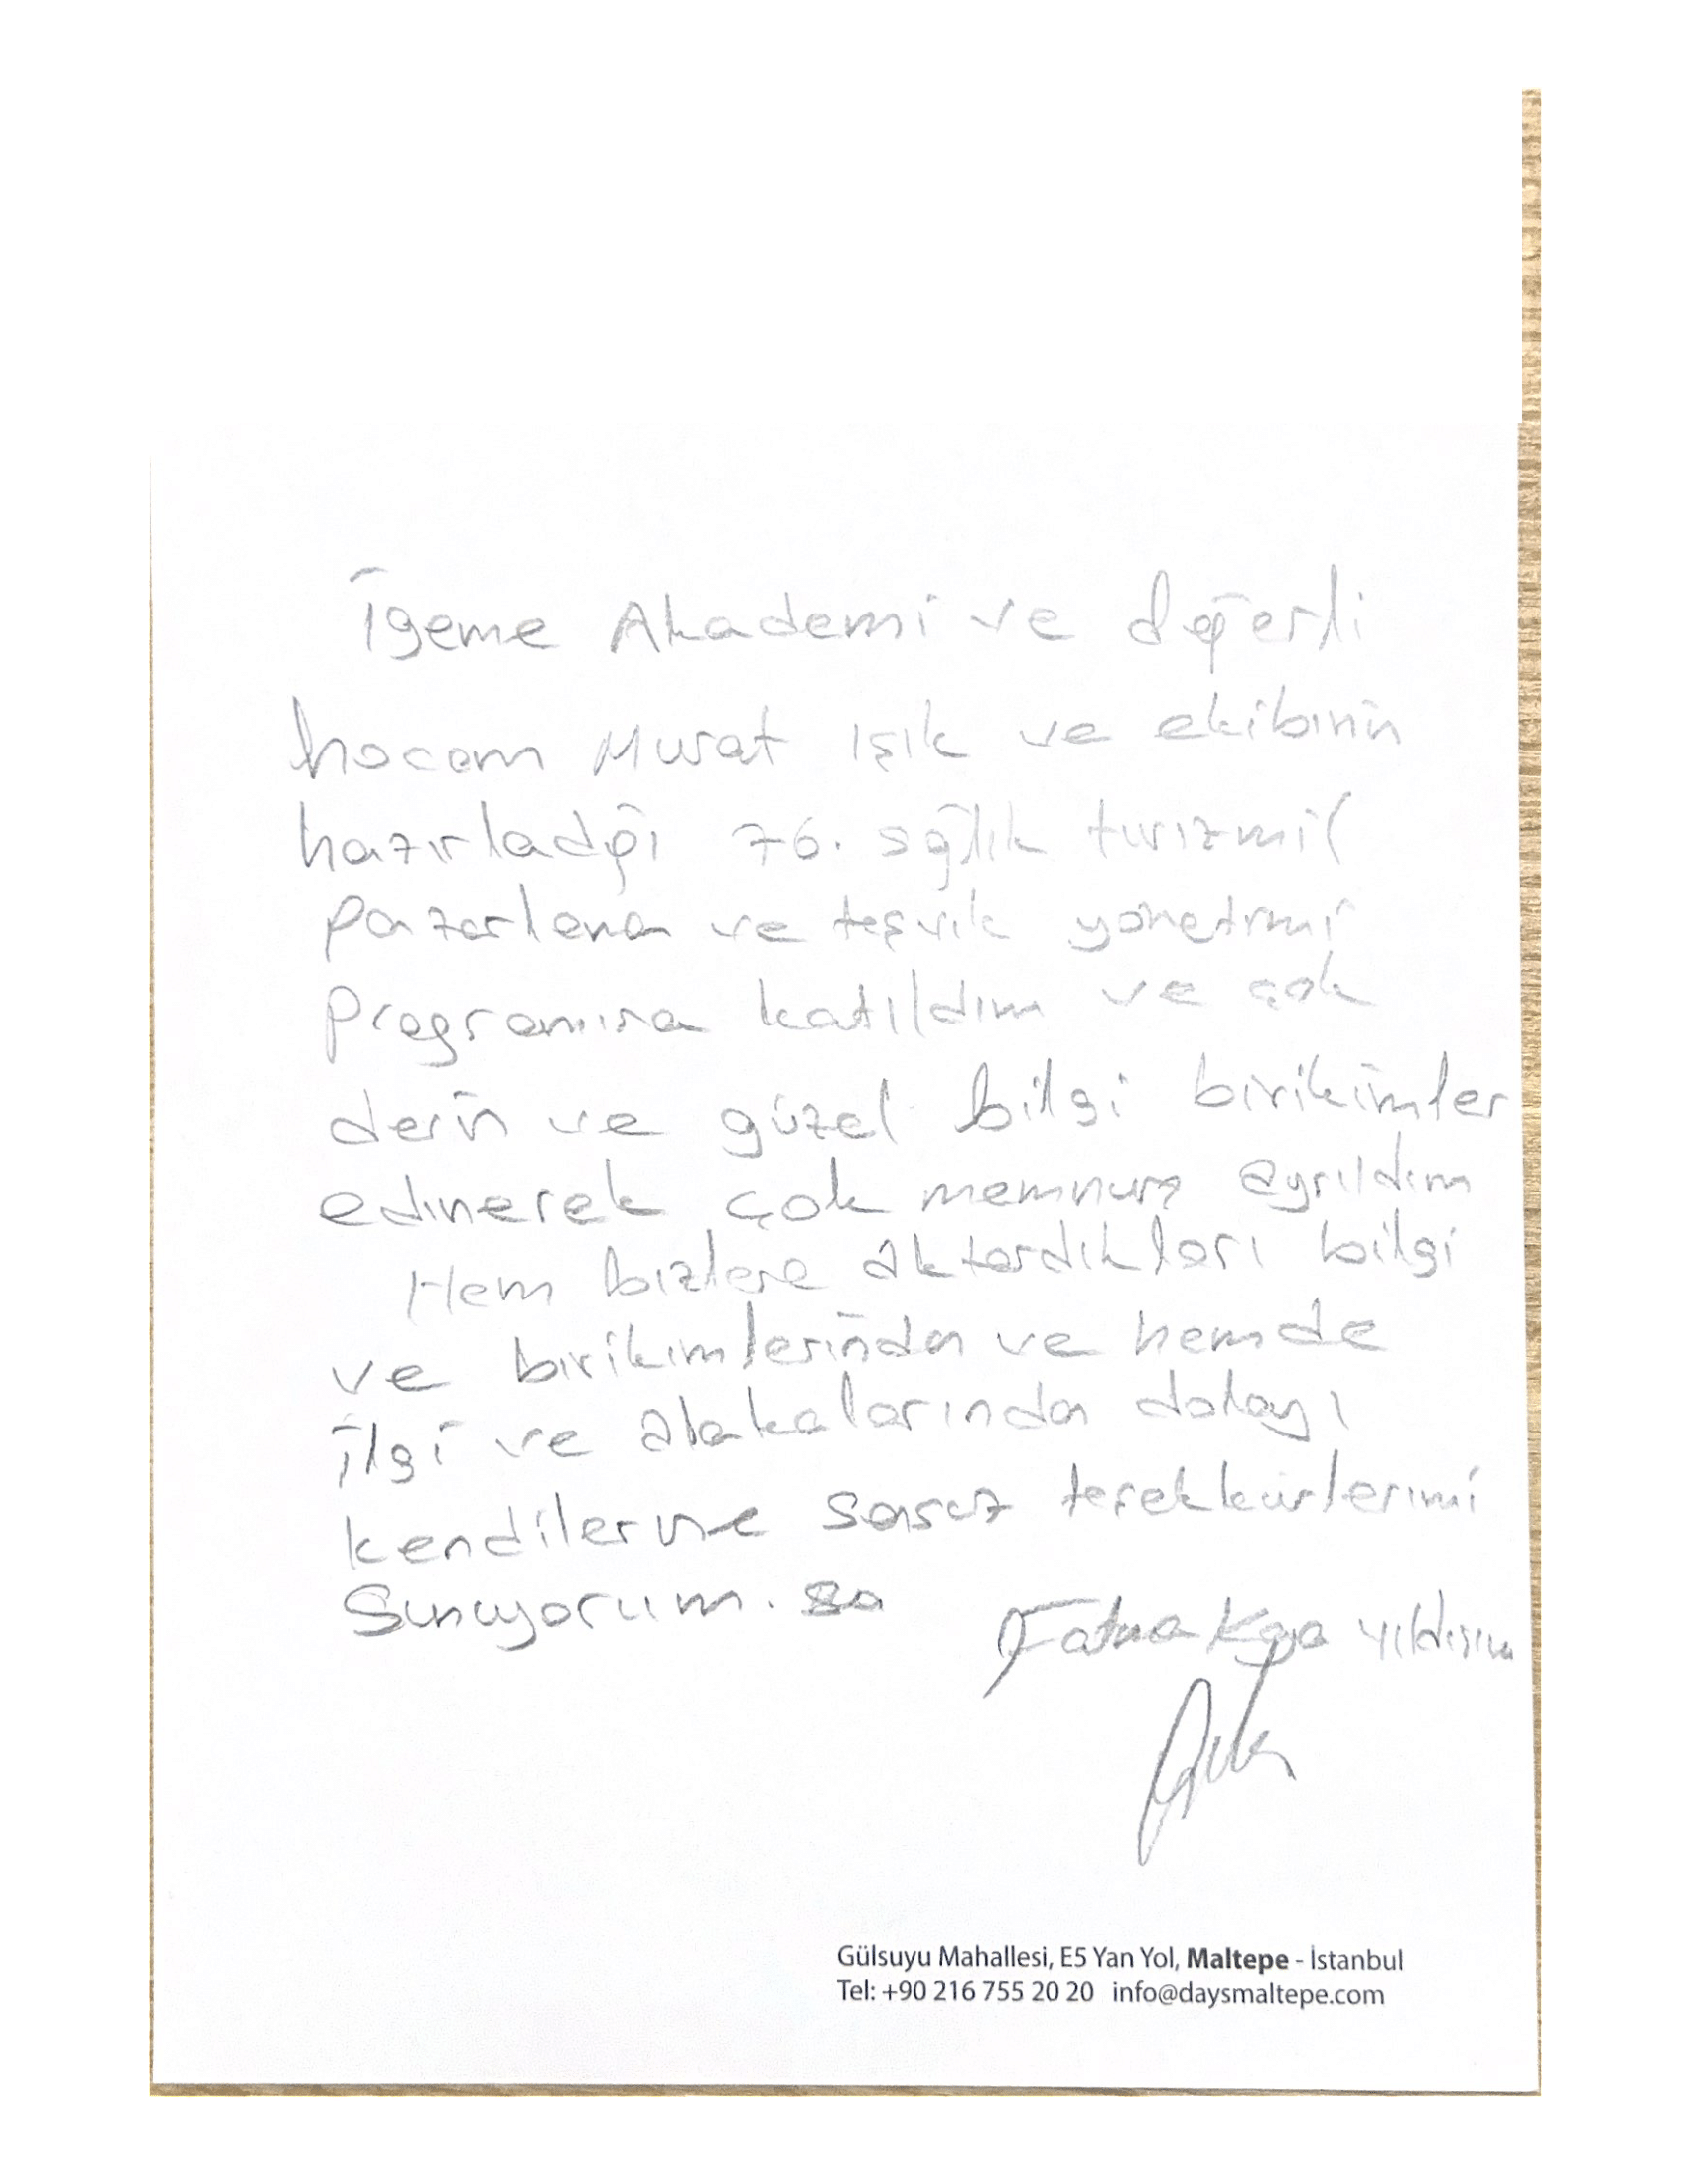 İgeme Akademi ve değerli
hocam Murat Işık ve ekibinin
hazırladğı 76. sğlık turizmi
pazarlama ve teşvik yönetimi
programına katıldım ve çok
derin ve güzel bilgi birikimler
edinerek çok memnun ayrıldım
Hem bizlere aktardıkları bilgi
ve birikimlerinden ve hemde
ilgi ve alakalarından dolayı
kendilerine sonsuz teşekkürlerimi
Sunuyorum.
Fatma Kaya Yıldırım
Gülsuyu Mahallesi, E5 Yan Yol, Maltepe - İstanbul
Tel: +90 216 755 20 20 info@daysmaltepe.com